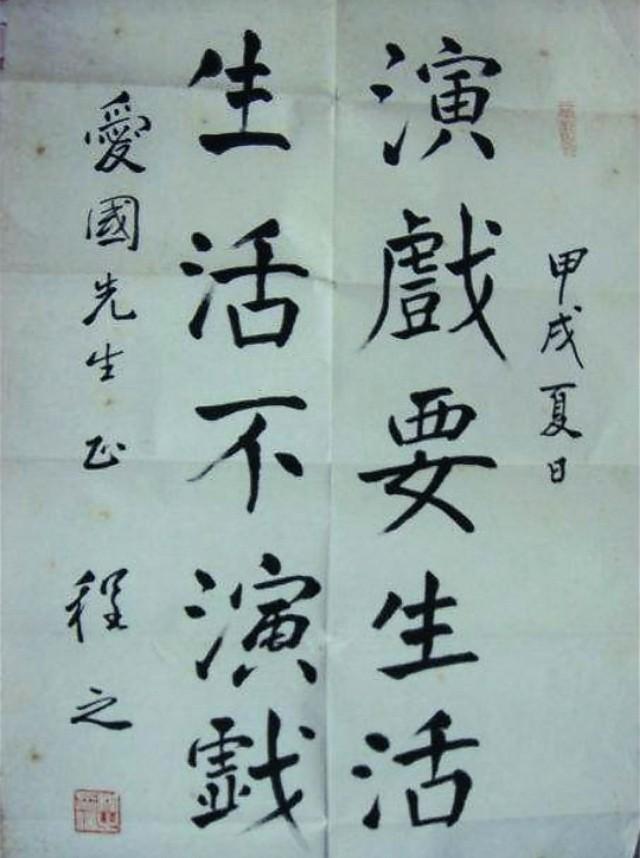 甲戌夏日
演戲要生活
生活不演戯
愛國先生正
程之